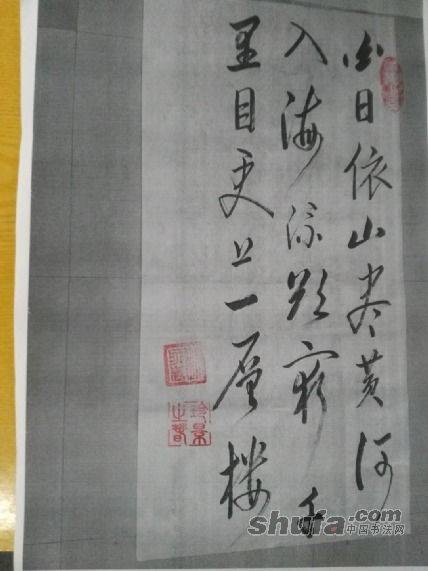 白日依山尽黄河
入海流欲穷千
里目更上一层楼
shufa.com
中国书法网